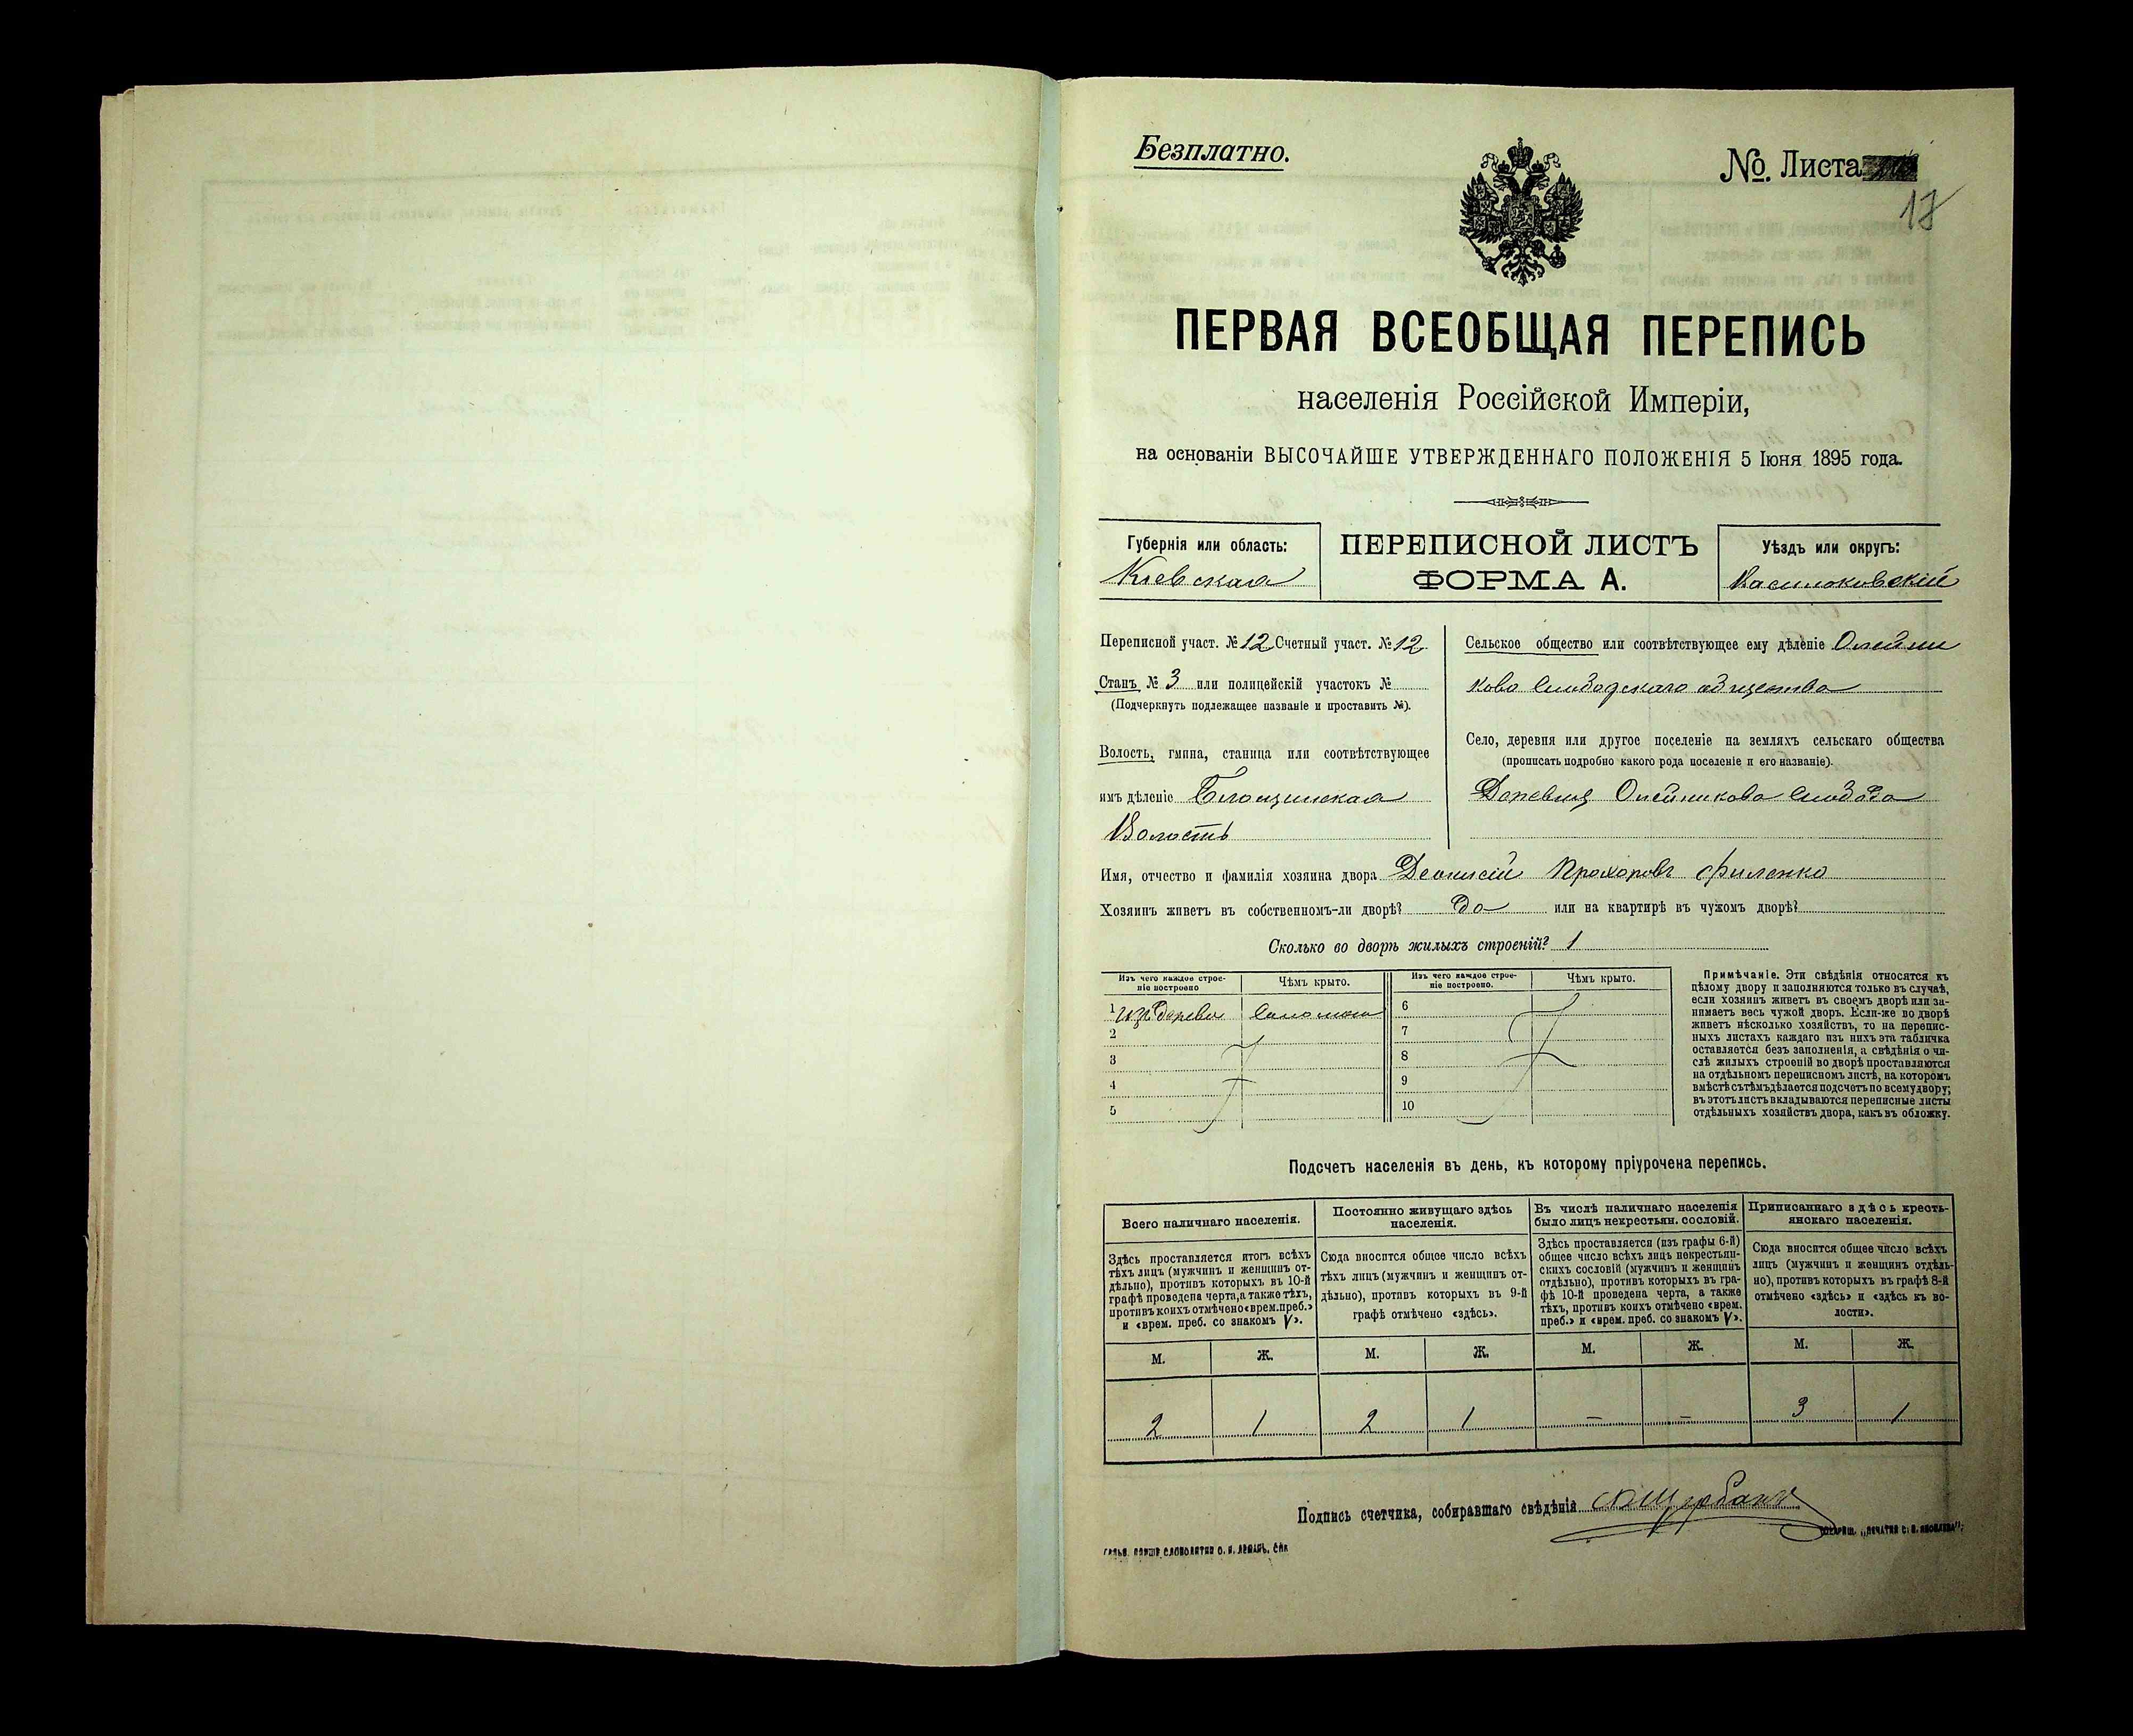 Безплатно.
№ Листа
17
ПЕРВАЯ ВСЕОБЩАЯ ПЕРЕПИСЬ
населенія Россійской Имперіи,
на основаніи ВЫСОЧАЙШЕ УТВЕРЖДЕННАГО ПОЛОЖЕНІЯ 5 Іюня 1895 года.
Губернія или область:
Кіевская
ПЕРЕПИСНОЙ ЛИСТЪ
ФОРМА А.
Уѣздъ или округъ:
Васильковскій
Переписной участ. № 12 Счетный участ. № 12
Станъ № 3 или полицейскій участокъ №
(Подчеркнуть подлежащее названіе и проставить №).
Волость, гмина, станица или соотвѣтствующее
имъ дѣленіе
Волость
Сельское общество или соотвѣтствующее ему дѣленіе Олейни
кова Слободскаго общества
Село, деревня или другое поселеніе на земляхъ сельскаго общества
(прописать подробно какого рода поселеніе и его названіе).
Деревня Олейникова Слобода
Имя, отчество и фамилія хозяина двора Деонисій Прохоровъ Филенко
Хозяинъ живетъ въ собственномъ-ли дворѣ? Да или на квартирѣ въ чужомъ дворѣ?
Сколько во дворѣ жилыхъ строеній? 1
Изъ чего каждое строе-
ніе построено
Чѣмъ крыто.
Изъ чего каждое строе-
ніе построено.
Чѣмъ крыто.
1 изъ дерева Соломою
2
3
4
5
6
7
8
9
10
Примѣчаніе. Эти свѣдѣнія относятся къ
цѣлому двору и заполняются только въ случаѣ,
если хозяинъ живетъ въ своемъ дворѣ или за-
нимаетъ весь чужой дворъ. Если-же во дворѣ
живетъ нѣсколько хозяйствъ, то на перепис-
ныхъ листахъ каждаго изъ нихъ эта табличка
оставляется безъ заполненія, а свѣдѣнія о чи-
слѣ жилыхъ строеній во дворѣ проставляются
на отдѣльномъ переписномъ листѣ, на которомъ
вмѣстѣ съ тѣмъ дѣлается подсчетъ по всему двору;
въ этотъ листъ вкладываются переписные листы
отдѣльныхъ хозяйствъ двора, какъ въ обложку.
Подсчетъ населенія въ день, къ которому пріурочена перепись.
Всего наличнаго населенія.
Здѣсь проставляется итогъ всѣхъ
тѣхъ лицъ (мужчинъ и женщинъ от-
дѣльно), противъ которыхъ въ 10-й
графѣ проведена черта, а также тѣхъ,
противъ коихъ отмѣчено «врем. преб.»
и «врем. преб. со знакомъ V».
Постоянно живущаго здѣсь
населенія.
Сюда вносится общее число всѣхъ
тѣхъ лицъ (мужчинъ и женщинъ от-
дѣльно), противъ которыхъ въ 9-й
графѣ отмѣчено «здѣсь».
Въ числѣ наличнаго населенія
было лицъ некрестьян. сословій.
Здѣсь проставляется (изъ графы 6-й)
общее число всѣхъ лицъ некрестьян-
скихъ сословій (мужчинъ и женщинъ
отдѣльно), противъ которыхъ въ гра-
фѣ 10-й проведена черта, а также
тѣхъ, противъ коихъ отмѣчено «врем.
преб.» и «врем. преб. со знакомъ V».
Приписаннаго здѣсь кресть-
янскаго населенія.
Сюда вносится общее число всѣхъ
лицъ (мужчинъ и женщинъ отдѣль-
но), противъ которыхъ въ графѣ 8-й
отмѣчено «здѣсь» и «здѣсь къ во-
лости».
М. Ж. М. Ж. М. Ж. М. Ж.
2 1 2 1 – – 3 1
Подпись счетчика, собиравшаго свѣдѣнія